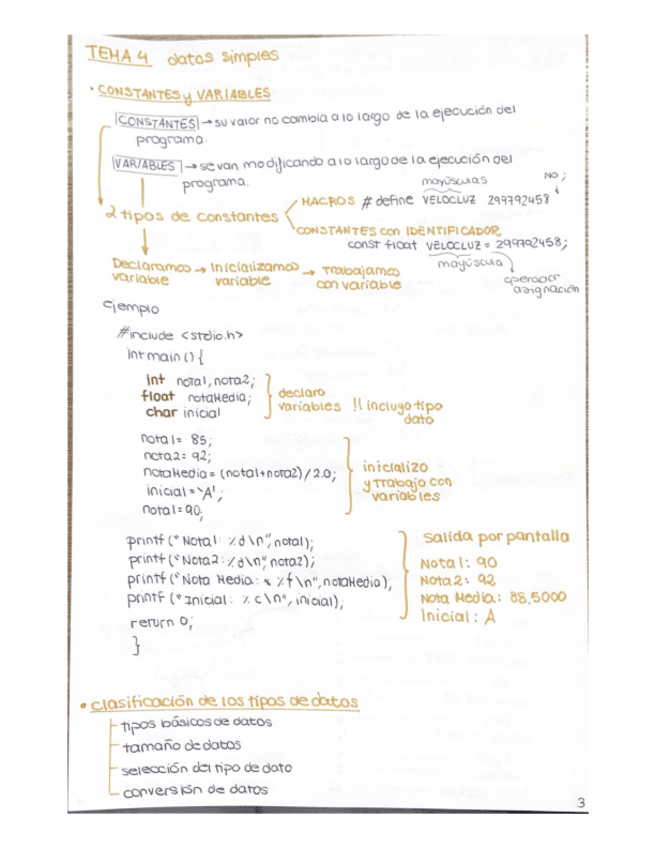 TEMA 4 datos simples
• CONSTANTES y VARIABLES
CONSTANTES → su valor no cambia a lo largo de la ejecución del
programa.
VARIABLES → se van modificando a lo largo de la ejecución del
programa.
mayúsculas NO ;
2 tipos de constantes
MACROS # define VELOCLUZ 299792458
CONSTANTES con IDENTIFICADOR
const float VELOCLUZ = 299792458;
mayúscula
operador
asignación
Declaramos → Inicializamos → Trabajamos
variable variable con variable
ejemplo
#include <stdio.h>
int main () {
int nota1, nota2;
float notaMedia;
char inicial
declaro
variables !! incluyo tipo
dato
nota1 = 85;
nota2 = 92;
notaMedia = (nota1+nota2)/2.0;
inicial = 'A';
nota1 = 90;
inicializo
y trabajo con
variables
printf ("Nota1: %d\n", nota1);
printf ("Nota2: %d\n", nota2);
printf ("Nota Media: % %f\n", notaMedia);
printf ("Inicial: %c\n", inicial);
return 0;
}
salida por pantalla
Nota1: 90
Nota2: 92
Nota Media: 88,5000
Inicial: A
• clasificación de los tipos de datos
tipos básicos de datos
tamaño de datos
selección del tipo de dato
conversión de datos
3